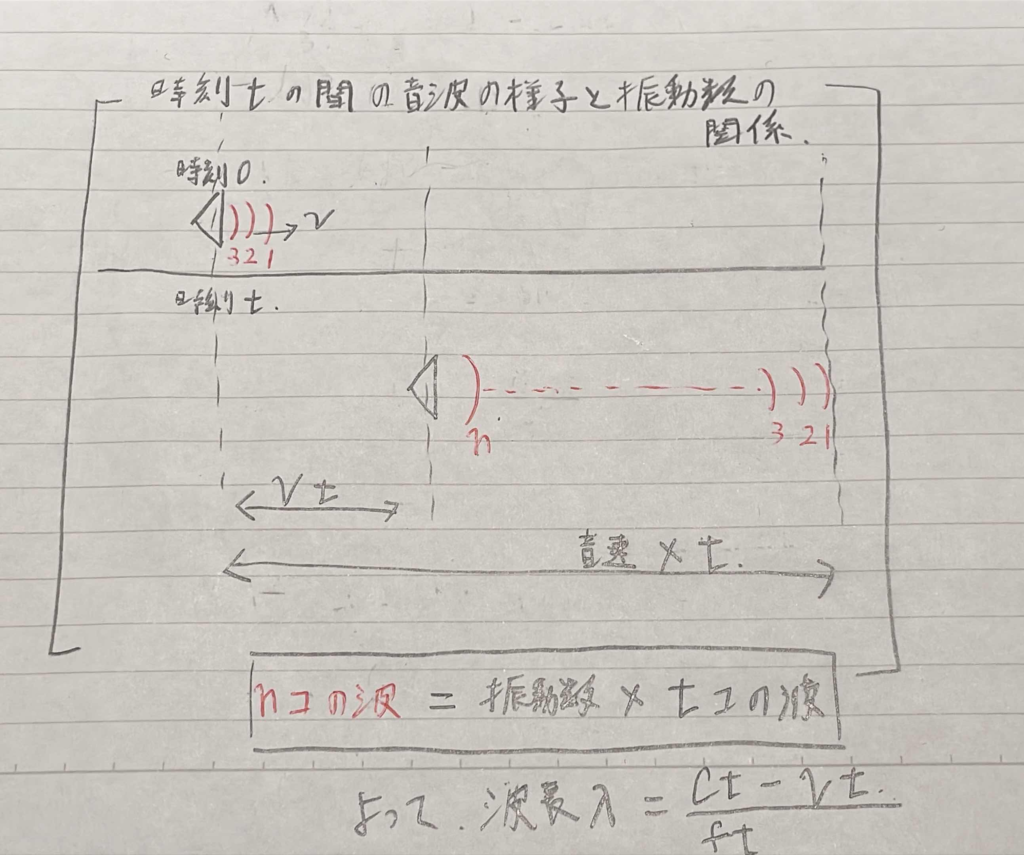 時刻tの間の音波の様子と振動数の
関係.
時刻0.
v
321
時刻t.
n
3 2 1
vt
音速×t.
nコの波 = 振動数×tコの波
よって. 波長λ = \frac{Ct - vt.}{ft}